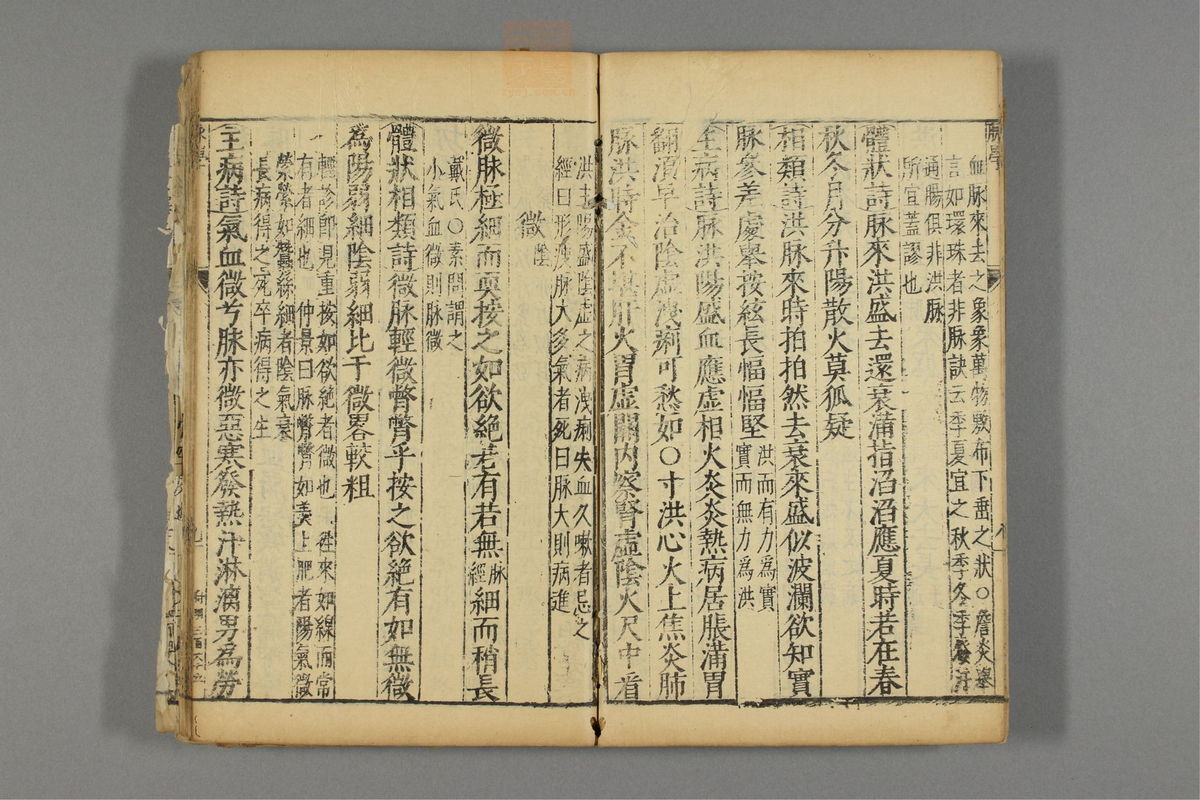 血脉來去之象象萬物敷布下垂之狀○詹炎舉
言如環珠者非脉訣云季夏宜之秋季冬季發汗
通腸俱非洪脉
所宜蓋謬也
體狀詩脉來洪盛去還衰滿指滔滔應夏時若在春
秋冬月分升陽散火莫狐疑
相類詩洪脉來時拍拍然去衰來盛似波瀾欲知實
脉參差處舉按絃長愊愊堅
洪而有力為實
實而無力為洪
主病詩脉洪陽盛血應虛相火炎炎熱病居脹滿胃
翻須早治陰虛洩痢可愁如○寸洪心火上焦炎肺
脉洪時金不堪肝火胃虛關内察腎虛陰火尺中看
洪主陽盛陰虛之病洩痢失血久嗽者忌之
經曰形瘦脉大多氣者死曰脉大則病進
微
陰
微脉極細而耎按之如欲絶若有若無
脉
經
細而稍長
戴氏○素問謂之
小氣血微則脉微
體狀相類詩微脉輕微瞥瞥乎按之欲絶有如無微
為陽弱細陰弱細比于微畧較粗
輕診即見重按如欲絶者微也往來如線而常
有者細也 仲景曰脉瞥瞥如羮上肥者陽氣微
縈縈如蠶絲細者陰氣衰
長病得之死卒病得之生
主病詩氣血微兮脉亦微惡寒發熱汗淋漓男為勞
脉學